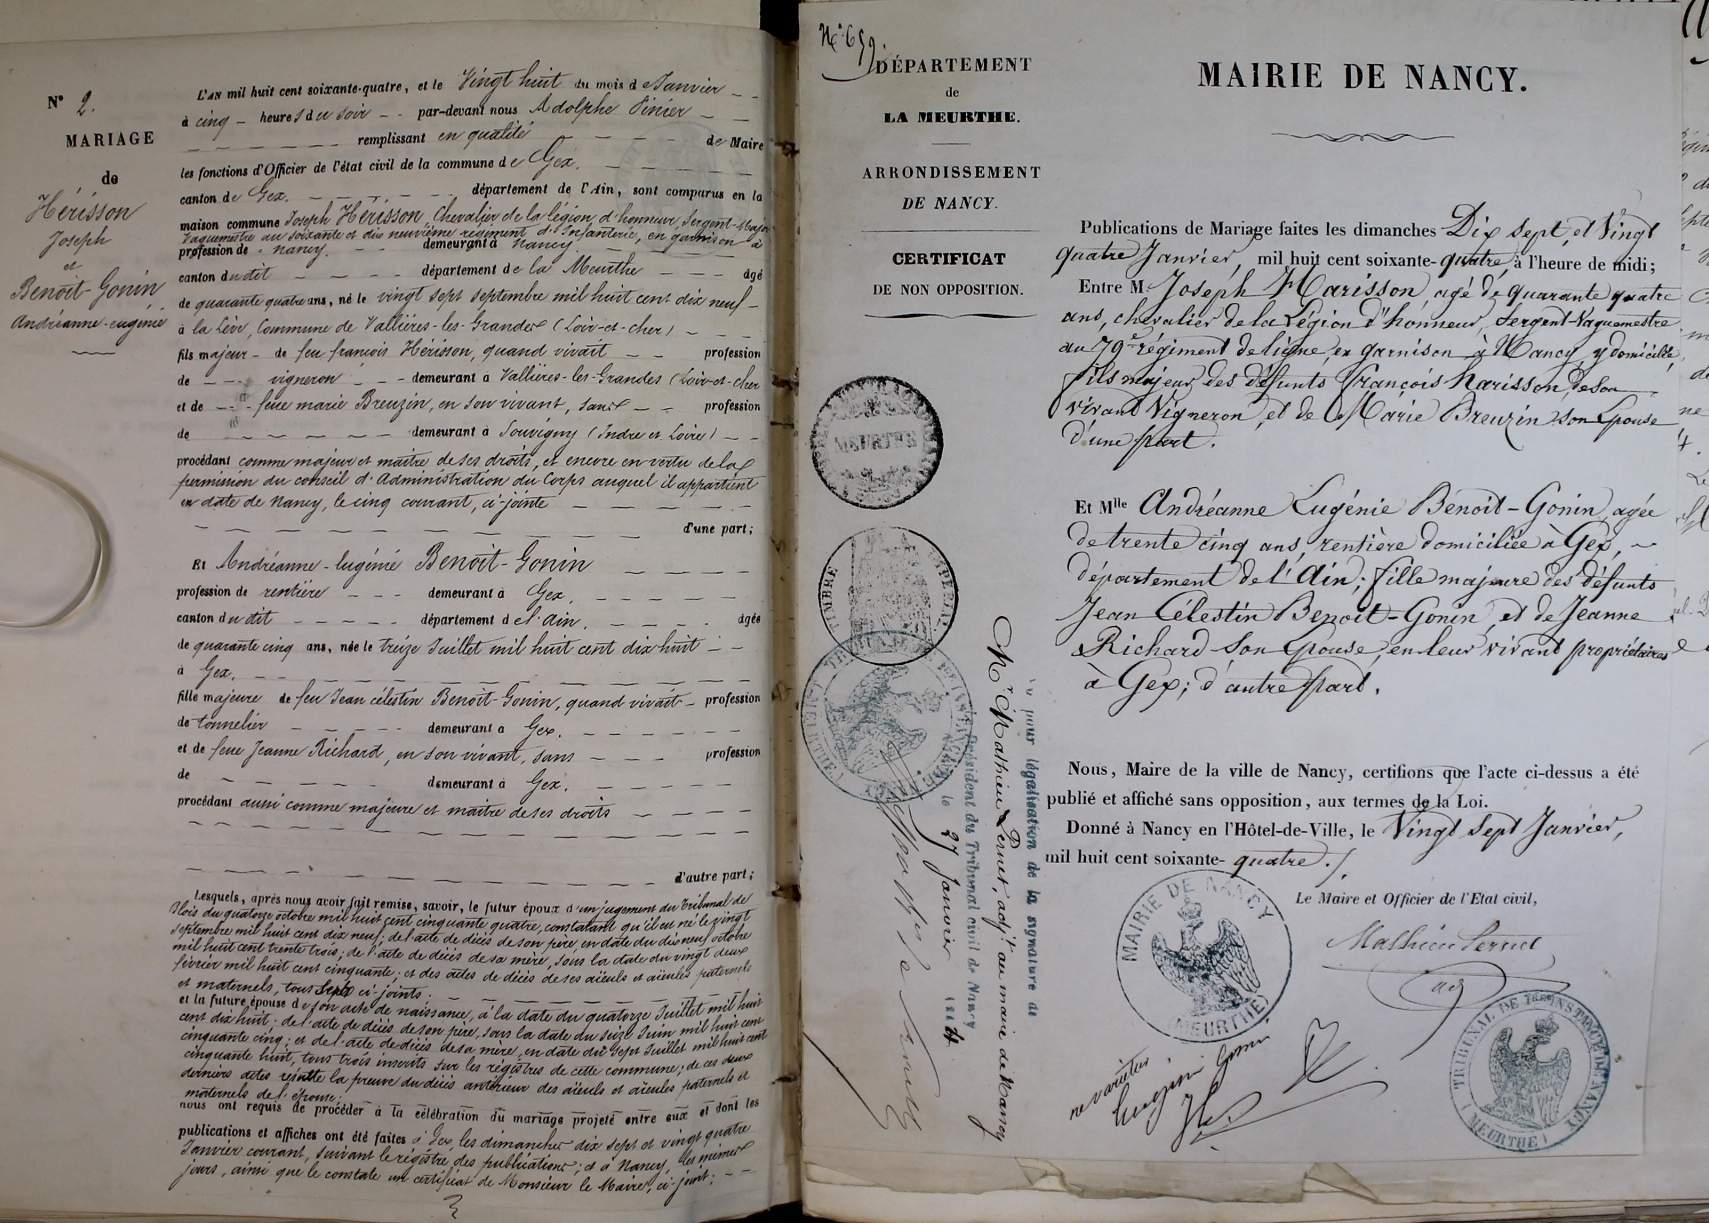 N° 2.
MARIAGE
de
Hérisson
Joseph
et
Benoit-Gonin
Andréanne-eugénie
L'AN mil huit cent soixante-quatre, et le Vingt huit du mois de Janvier
à cinq heures du soir par-devant nous Adolphe Pinier
remplissant en qualité de Maire
les fonctions d'Officier de l'état civil de la commune de Gex.
canton de Gex. département de l'Ain, sont comparus en la
maison commune Joseph Hérisson, Chevalier de la légion d'honneur, Sergent-Major
Vaguemestre au soixante et dix neuvième régiment d'Infanterie, en garnison à
profession de Nancy. demeurant à Nancy
canton dudit département de la Meurthe âgé
de quarante quatre ans, né le vingt sept septembre mil huit cent dix neuf
à la Commune de Vallières-les-Grandes (Loir-et-cher)
fils majeur de feu françois Hérisson, quand vivait profession
de vigneron demeurant à Vallières-les-Grandes (Loir-et-cher
et de feue marie Breuzin, en son vivant, sans profession
de demeurant à Souvigny (Indre et Loire)
procédant comme majeur et maitre de ses droits, et encore en vertu de la
permission du conseil d'Administration du Corps auquel il appartient
en date de Nancy, le cinq courant, ci-jointe
d'une part;
Et Andréanne-Eugénie Benoit-Gonin
profession de rentière demeurant à Gex.
canton dudit département de l'Ain. âgée
de quarante cinq ans, née le treize Juillet mil huit cent dix huit
à Gex.
fille majeure de feu Jean célestin Benoit-Gonin, quand vivait profession
de tonnelier demeurant à Gex.
et de feue Jeanne Richard, en son vivant, sans profession
de demeurant à Gex.
procédant aussi comme majeure et maitre de ses droits
d'autre part;
Lesquels, après nous avoir fait remise, savoir, le futur époux d'un jugement du Tribunal de
Blois du quatorze octobre mil huit cent cinquante quatre, constatant qu'il est né le vingt
septembre mil huit cent dix neuf; de l'acte de décès de son père, en date du dix neuf octobre
mil huit cent trente trois; de l'acte de décès de sa mère, sous la date du vingt deux
février mil huit cent cinquante; et des actes de décès de ses aïeuls et aïeules paternels
et maternels, tous Sept ci-joints.
et la future épouse de son acte de naissance, à la date du quatorze Juillet mil huit
cent dix huit; de l'acte de décès de son père, sous la date du seize Juin mil huit cent
cinquante cinq; et de l'acte de décès de sa mère, en date du Sept Juillet mil huit cent
cinquante huit, tous trois inscrits sur les régistres de cette commune; de ces deux
derniers actes résulte la preuve du décès antérieur des aïeuls et aïeules paternels et
maternels de l'épouse;
nous ont requis de procéder à la célébration du mariage projeté entre eux et dont les
publications et affiches ont été faites à Gex les dimanches dix sept et vingt quatre
Janvier courant, suivant le régistre des publications; et à Nancy, les mêmes
jours, ainsi que le constate un certificat de Monsieur le Maire, ci-joint;
N° 659.
DÉPARTEMENT
de
LA MEURTHE.
ARRONDISSEMENT
DE NANCY.
CERTIFICAT
DE NON OPPOSITION.
MEURTHE
TIMBRE IMPÉRIAL
TRIBUNAL DE 1ère INSTANCE DE NANCY
(MEURTHE)
Vu pour légalisation de la signature de
Mr Mathieu Pernet, adjt au maire de Nancy
Président du Tribunal civil de Nancy
Nancy le 27 Janvier 1864
MAIRIE DE NANCY.
Publications de Mariage faites les dimanches Dix sept, et Vingt
quatre Janvier, mil huit cent soixante-quatre, à l'heure de midi;
Entre M. Joseph Harisson, agé de quarante quatre
ans, chevalier de la Légion d'honneur, Sergent-Vaguemestre
au 79e régiment de ligne, en garnison à Nancy, y domicilié,
fils majeur des défunts François Harisson, de son
vivant Vigneron, et de Marie Breuzin son Epouse
d'une part.
Et Mlle Andréanne Eugénie Benoit-Gonin, agée
de trente cinq ans, rentière domiciliée à Gex,
département de l'Ain; fille majeure des défunts
Jean Célestin Benoit-Gonin, et de Jeanne
Richard son Epouse, en leur vivant propriétaires
à Gex; d'autre part.
Nous, Maire de la ville de Nancy, certifions que l'acte ci-dessus a été
publié et affiché sans opposition, aux termes de la Loi.
Donné à Nancy en l'Hôtel-de-Ville, le Vingt Sept Janvier,
mil huit cent soixante-quatre.
Le Maire et Officier de l'Etat civil,
Mathieu Pernet
adj
MAIRIE DE NANCY
(MEURTHE)
ne varietur
Eugénie Gonin
TRIBUNAL DE 1ère INSTANCE DE NANCY
(MEURTHE)